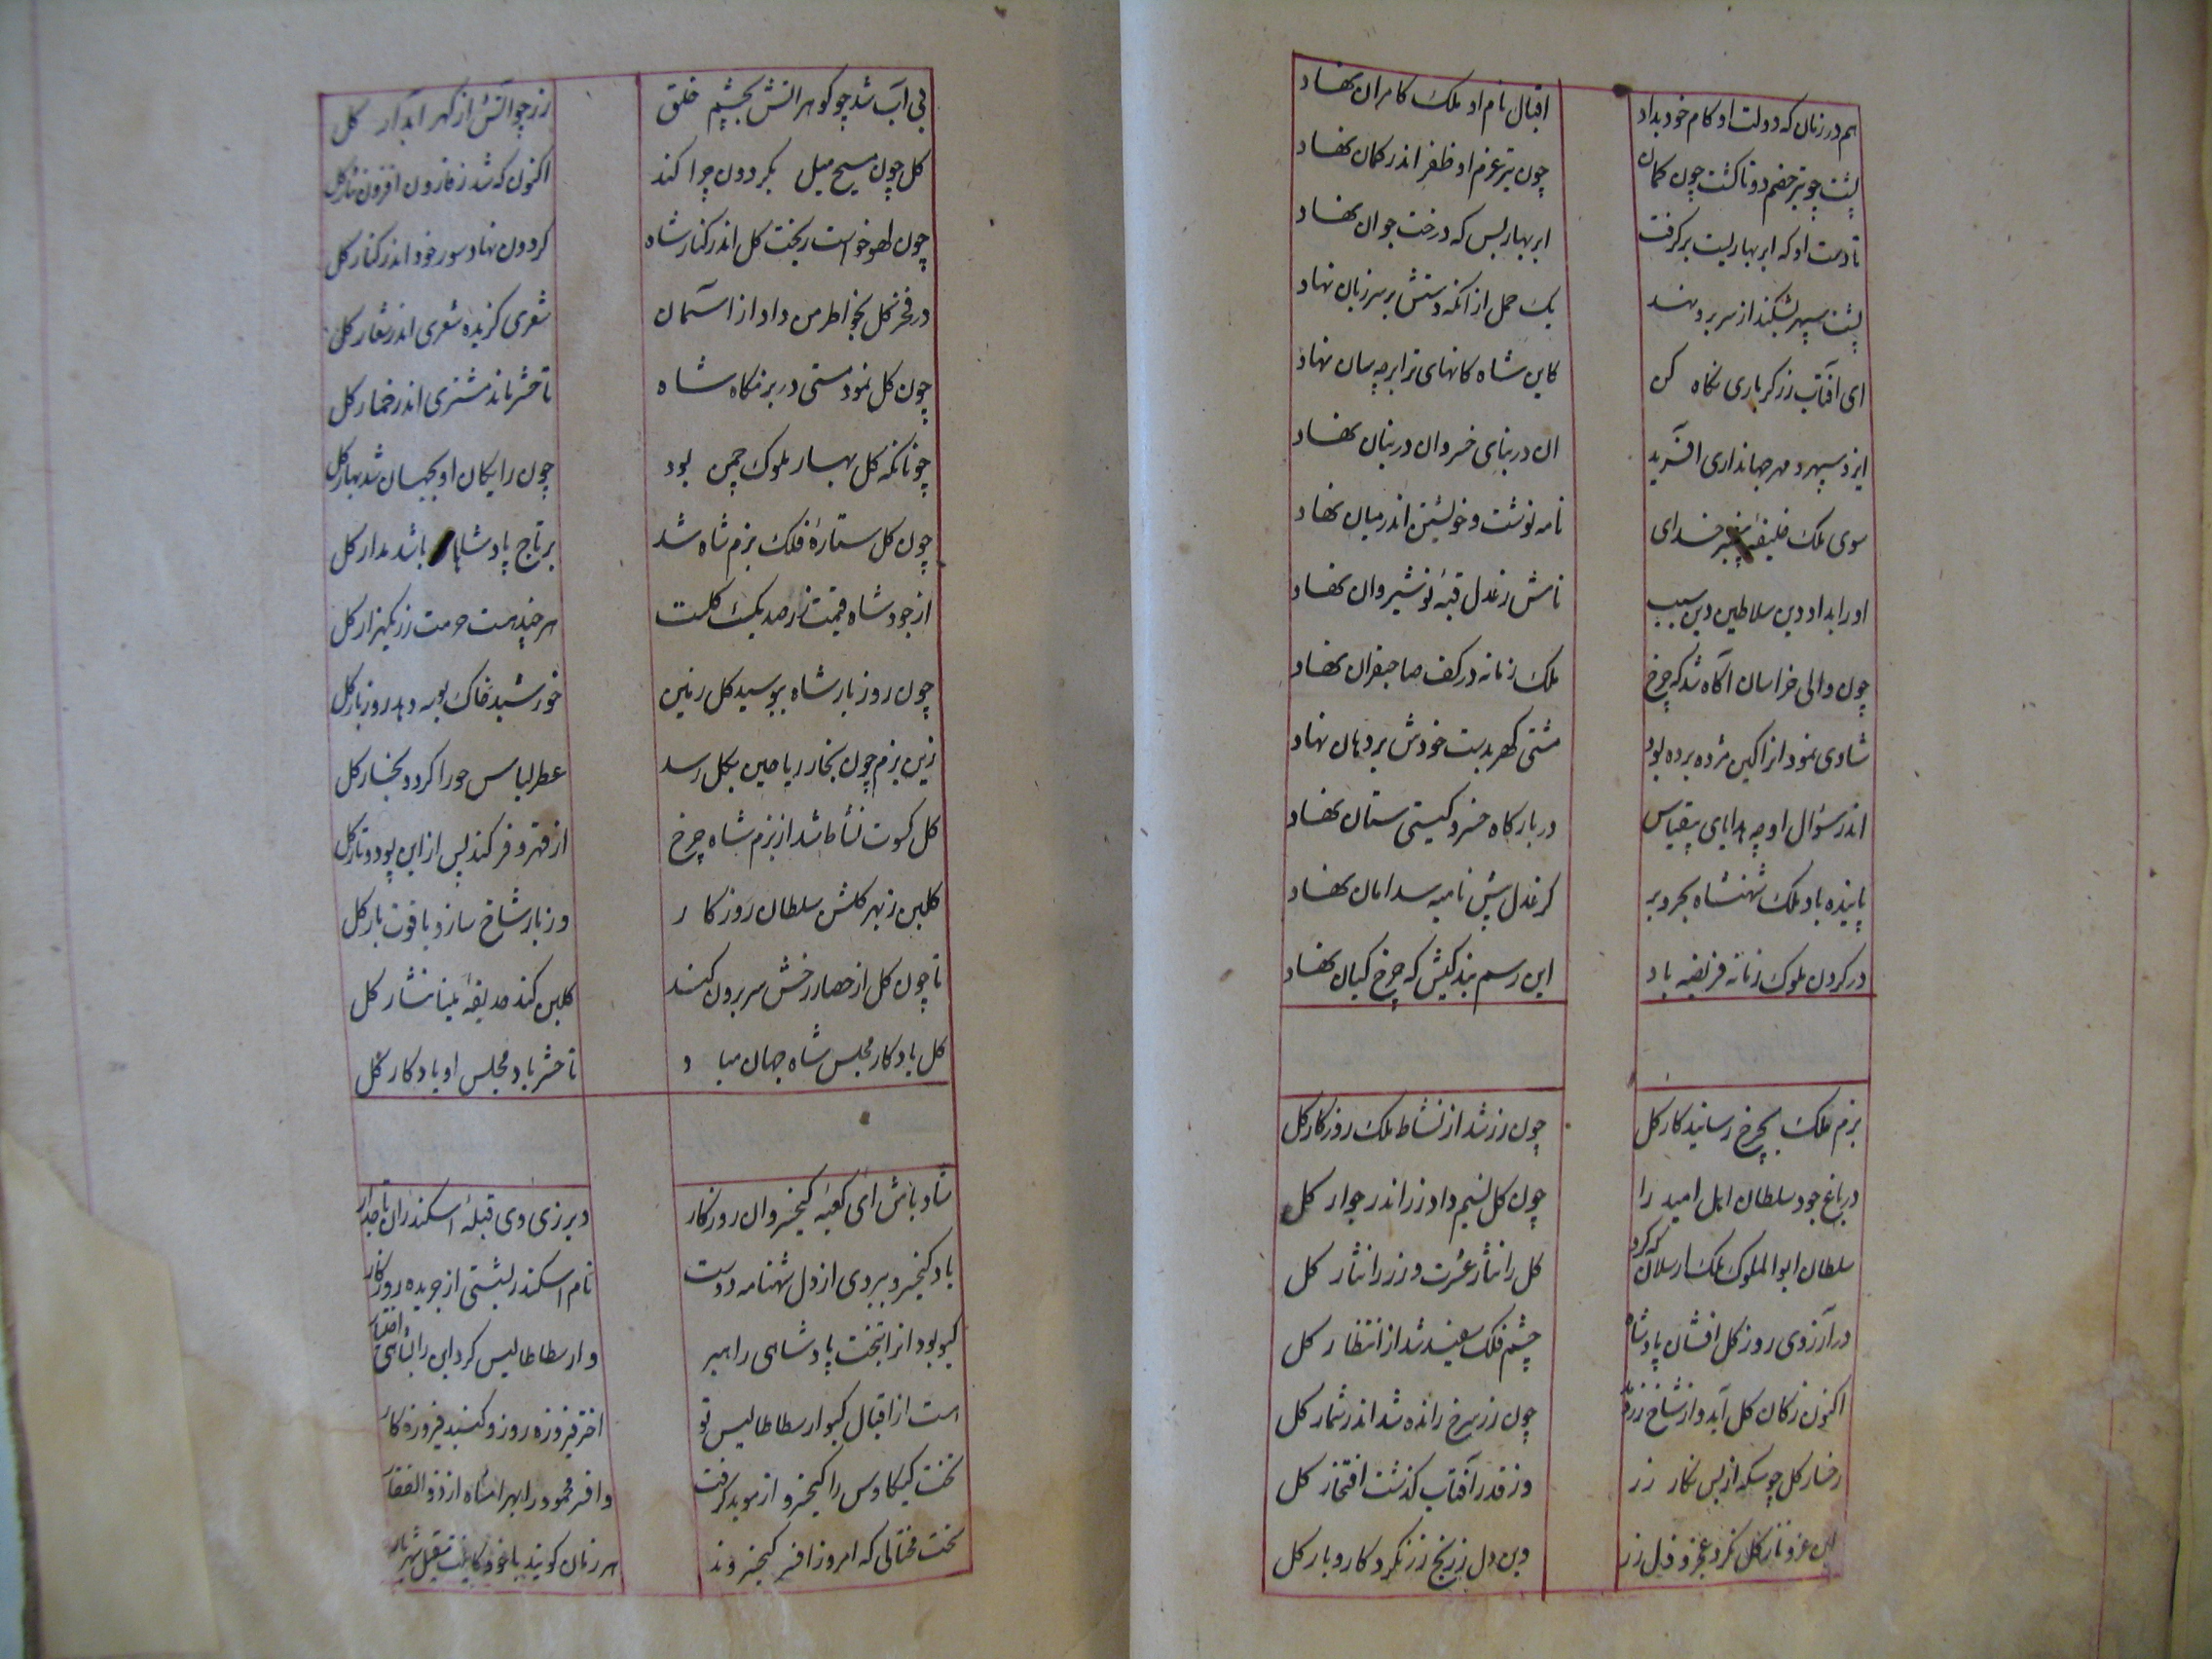 هم در زمان که دولت او کام خود بداد اقبال نام او ملک کامران نهاد
پشت چو تیر خصم دوتا گشت چون کمان چون تیر عزم او ظفر اندر کمان نهاد
تا دست او که ابر بهاریست برگرفت ابر بهار بس که درخت جوان نهاد
پشت سپهر بشکند از سر برو نهند یک حمل از آنکه دستش بر سر زبان نهاد
ای آفتاب زرکر باری نکاه کن کاین شاه کانهای ترا بر چه سان نهاد
ایزد سپهر و مهر جهانداری آفرید آن در بنای خسروان در بنان نهاد
سوی ملک خلیفهٔ پیغمبر خدای نامه نوشت و خویشتن اندر میان نهاد
او را بداد دین سلاطین دین سبب نامش ز عدل قبهٔ نوشیروان نهاد
چون والی خراسان آگاه شد که چرخ ملک زمانه در کف صاحبقران نهاد
شادی نمود از آکین مژده برده بود مشتی کهر بدست خودش بر دهان نهاد
اندر سؤال او چه هدایای بیقیاس در بارکاه خسرو کیتی ستان نهاد
پاینده باد ملک شهنشاه بحر و بر کز عدل پیش نامیه سد امان نهاد
در کردن ملوک زمانه فریضه باد این رسم بندکیش که چرخ کیان نهاد
بزم ملک بچرخ رسانید کار کل چون زر شد از نشاط ملک روزکار کل
در باغ جود سلطان اهل امید را چون کل نسیم داد زر اندر جوار کل
سلطان ابوالملوک ملک ارسلان که کرد کل را نثار عشرت و زر را نثار کل
در آرزوی روز کل افشان پادشاه چشم فلک سفید شد از انتظار کل
اکنون ز کان کل آید و از شاخ زر چون زر سرخ رانده شد اندر شمار کل
رخسار کل چو سکه از بس نکار زر وز قدر آفتاب کذشت افتخار کل
این عز و ناز کل نکرد عجز و ذل زر وین دل ز رنج زر نکرد کار و بار کل
بی آب شد چو کوهر آتش بچشم خلق زر چو آتش از کهر آبدار کل
کل چون مسیح میل بکردون چرا کند اکنون که شد ز قارون افزون نثار کل
چون لهو خواست ریخت کل اندر کنار شاه کردون نهاد سور خود اندر کنار کل
در فخر کل بخاطر من داد از آسمان شعری کزیده شعری اندر شعار کل
چون کل نمود مستی در بزمکاه شاه تا حشر ماند مشتری اندر خمار کل
چونانکه کل بهار ملوک چمن بود چون رایکان او بجهان شد بهار کل
چون کل ستارهٔ فلک بزم شاه شد بر تاج پادشاها باشد مدار کل
از جود شاه قیمت زر صد یک کلست هر چند هست حرمت زر یکهزار کل
چون روز بار شاه ببوسید کل زمین خورشید خاک بوسه دهد روز بار کل
زین بزم چون بخار ریاحین بکل رسد عطر لباس حورا کردد بخار کل
کل کسوت نشاط شد از بزم شاه چرخ از قهر و فر کند پس ازین پود و تار کل
کلبن ز بهر کلشن سلطان روزکار وز بار شاخ سازد یاقوت بار کل
تا چون کل از حصار رخش سر برون کند کلبن کند حدیقهٔ مینا نثار کل
کل یادکار مجلس شاه جهان مباد تا حشر باد مجلس او یادکار کل
شاد باش ای کعبهٔ کیخسروان روزکار دیر زی وی قبلهٔ اسکندران تاجدار
یاد کیخسرو ببردی از دل شهنامه دوست نام اسکندر بشستی از جریده روزکار
کیو بود آنرا بتخت پادشاهی راهبر و ارسطاطالیس کرد این را بشاهی اختیار
است از اقبال کیو ارسطاطالیس تو اختر فیروزه روز و کنبد فیروزه کار
تخت کیکاوس را کیخسرو از موبد کرفت وافسر محمود را بهرامشاه از ذوالفقار
تخت که امروز افسر کیخسروند هر زمان کویند با خود